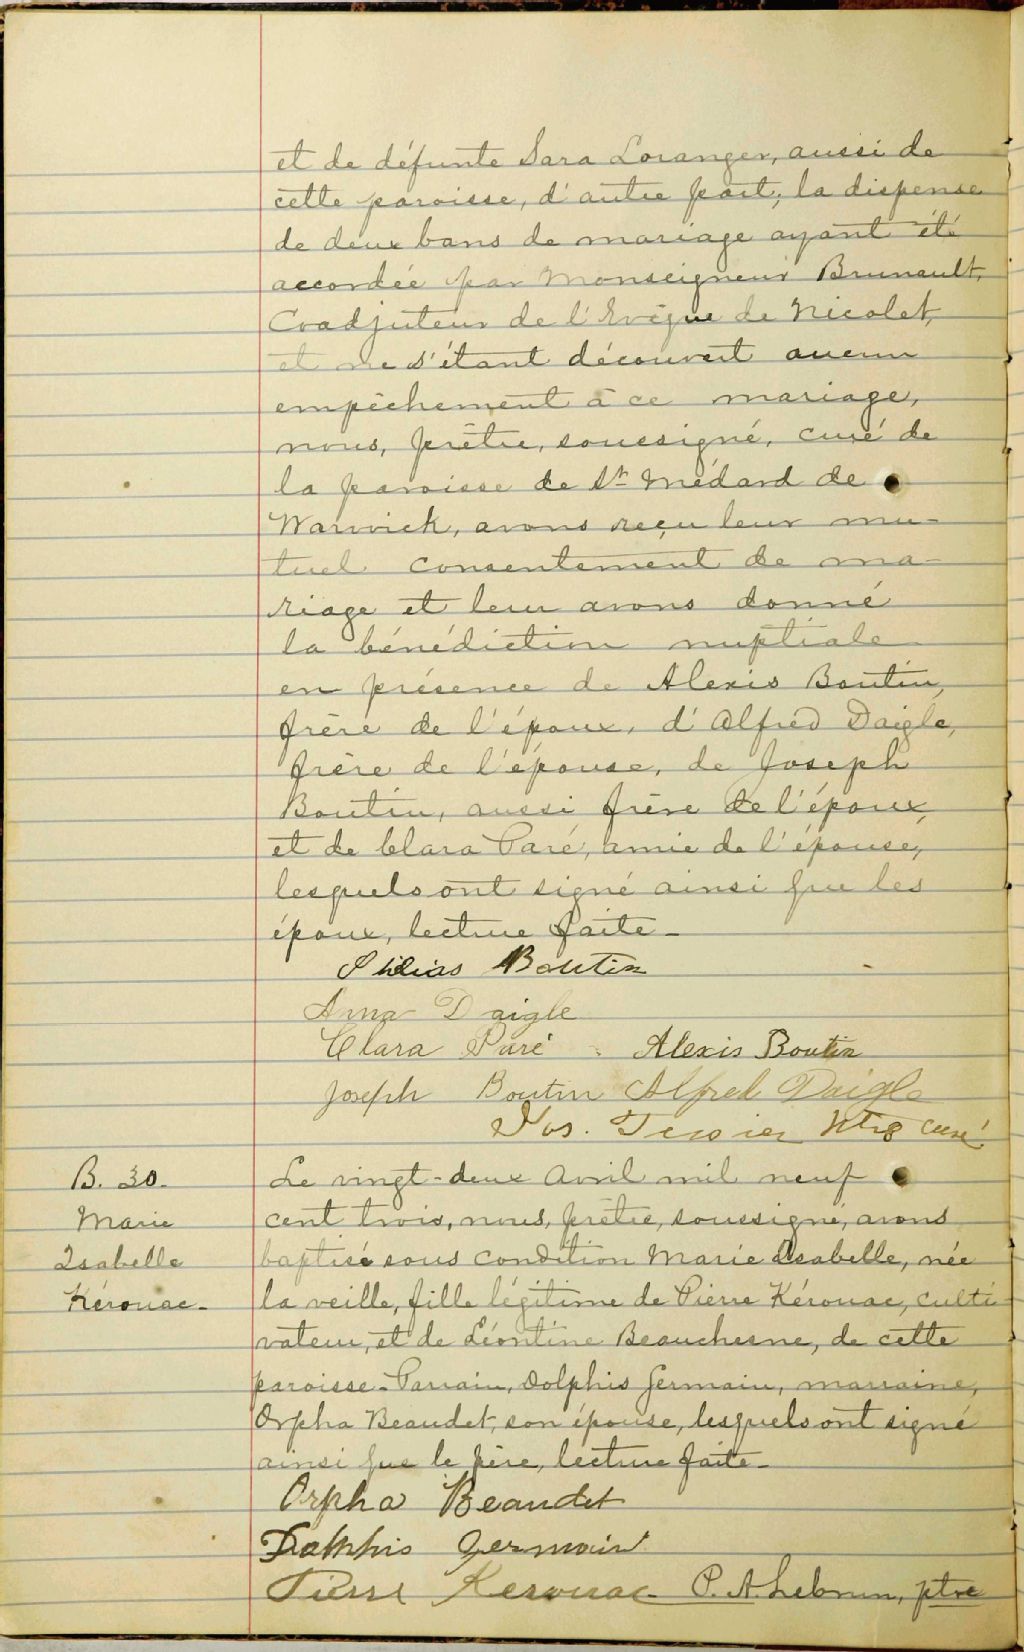 et de défunte Sara Loranger, aussi de
cette paroisse, d'autre part; la dispense
de deux bans de mariage ayant été
accordée par Monseigneur Brunault,
Coadjuteur de l'Evêque de Nicolet,
et ne s'étant découvert aucun
empêchement à ce mariage,
nous, prêtre, soussigné, curé de
la paroisse de St Médard de
Warwick, avons reçu leur mu-
tuel consentement de ma-
riage et leur avons donné
la bénédiction nuptiale
en présence de Alexis Boutin,
frère de l'époux, d'Alfred Daigle,
frère de l'épouse, de Joseph
Boutin, aussi frère de l'époux,
et de Clara Paré, amie de l'épouse,
lesquels ont signé ainsi que les
époux, lecture faite-
Philias Boutin
Anna Daigle
Clara Paré Alexis Boutin
Joseph Boutin Alfred Daigle
Jos. Tessier Ptre curé
B. 30.
Marie
Isabelle
Kérouac-
Le vingt-deux Avril mil neuf
cent trois, nous, prêtre, soussigné, avons
baptisé sous condition Marie Isabelle, née
la veille, fille légitime de Pierre Kérouac, culti
vateur, et de Léontine Beauchesne, de cette
paroisse- Parrain, Dolphis Germain, marraine,
Orpha Beaudet, son épouse, lesquels ont signé
ainsi que le père, lecture faite-
Orpha Beaudet
Dolphis Germain
Pierre Kerouac P. A. Lebrun, ptre